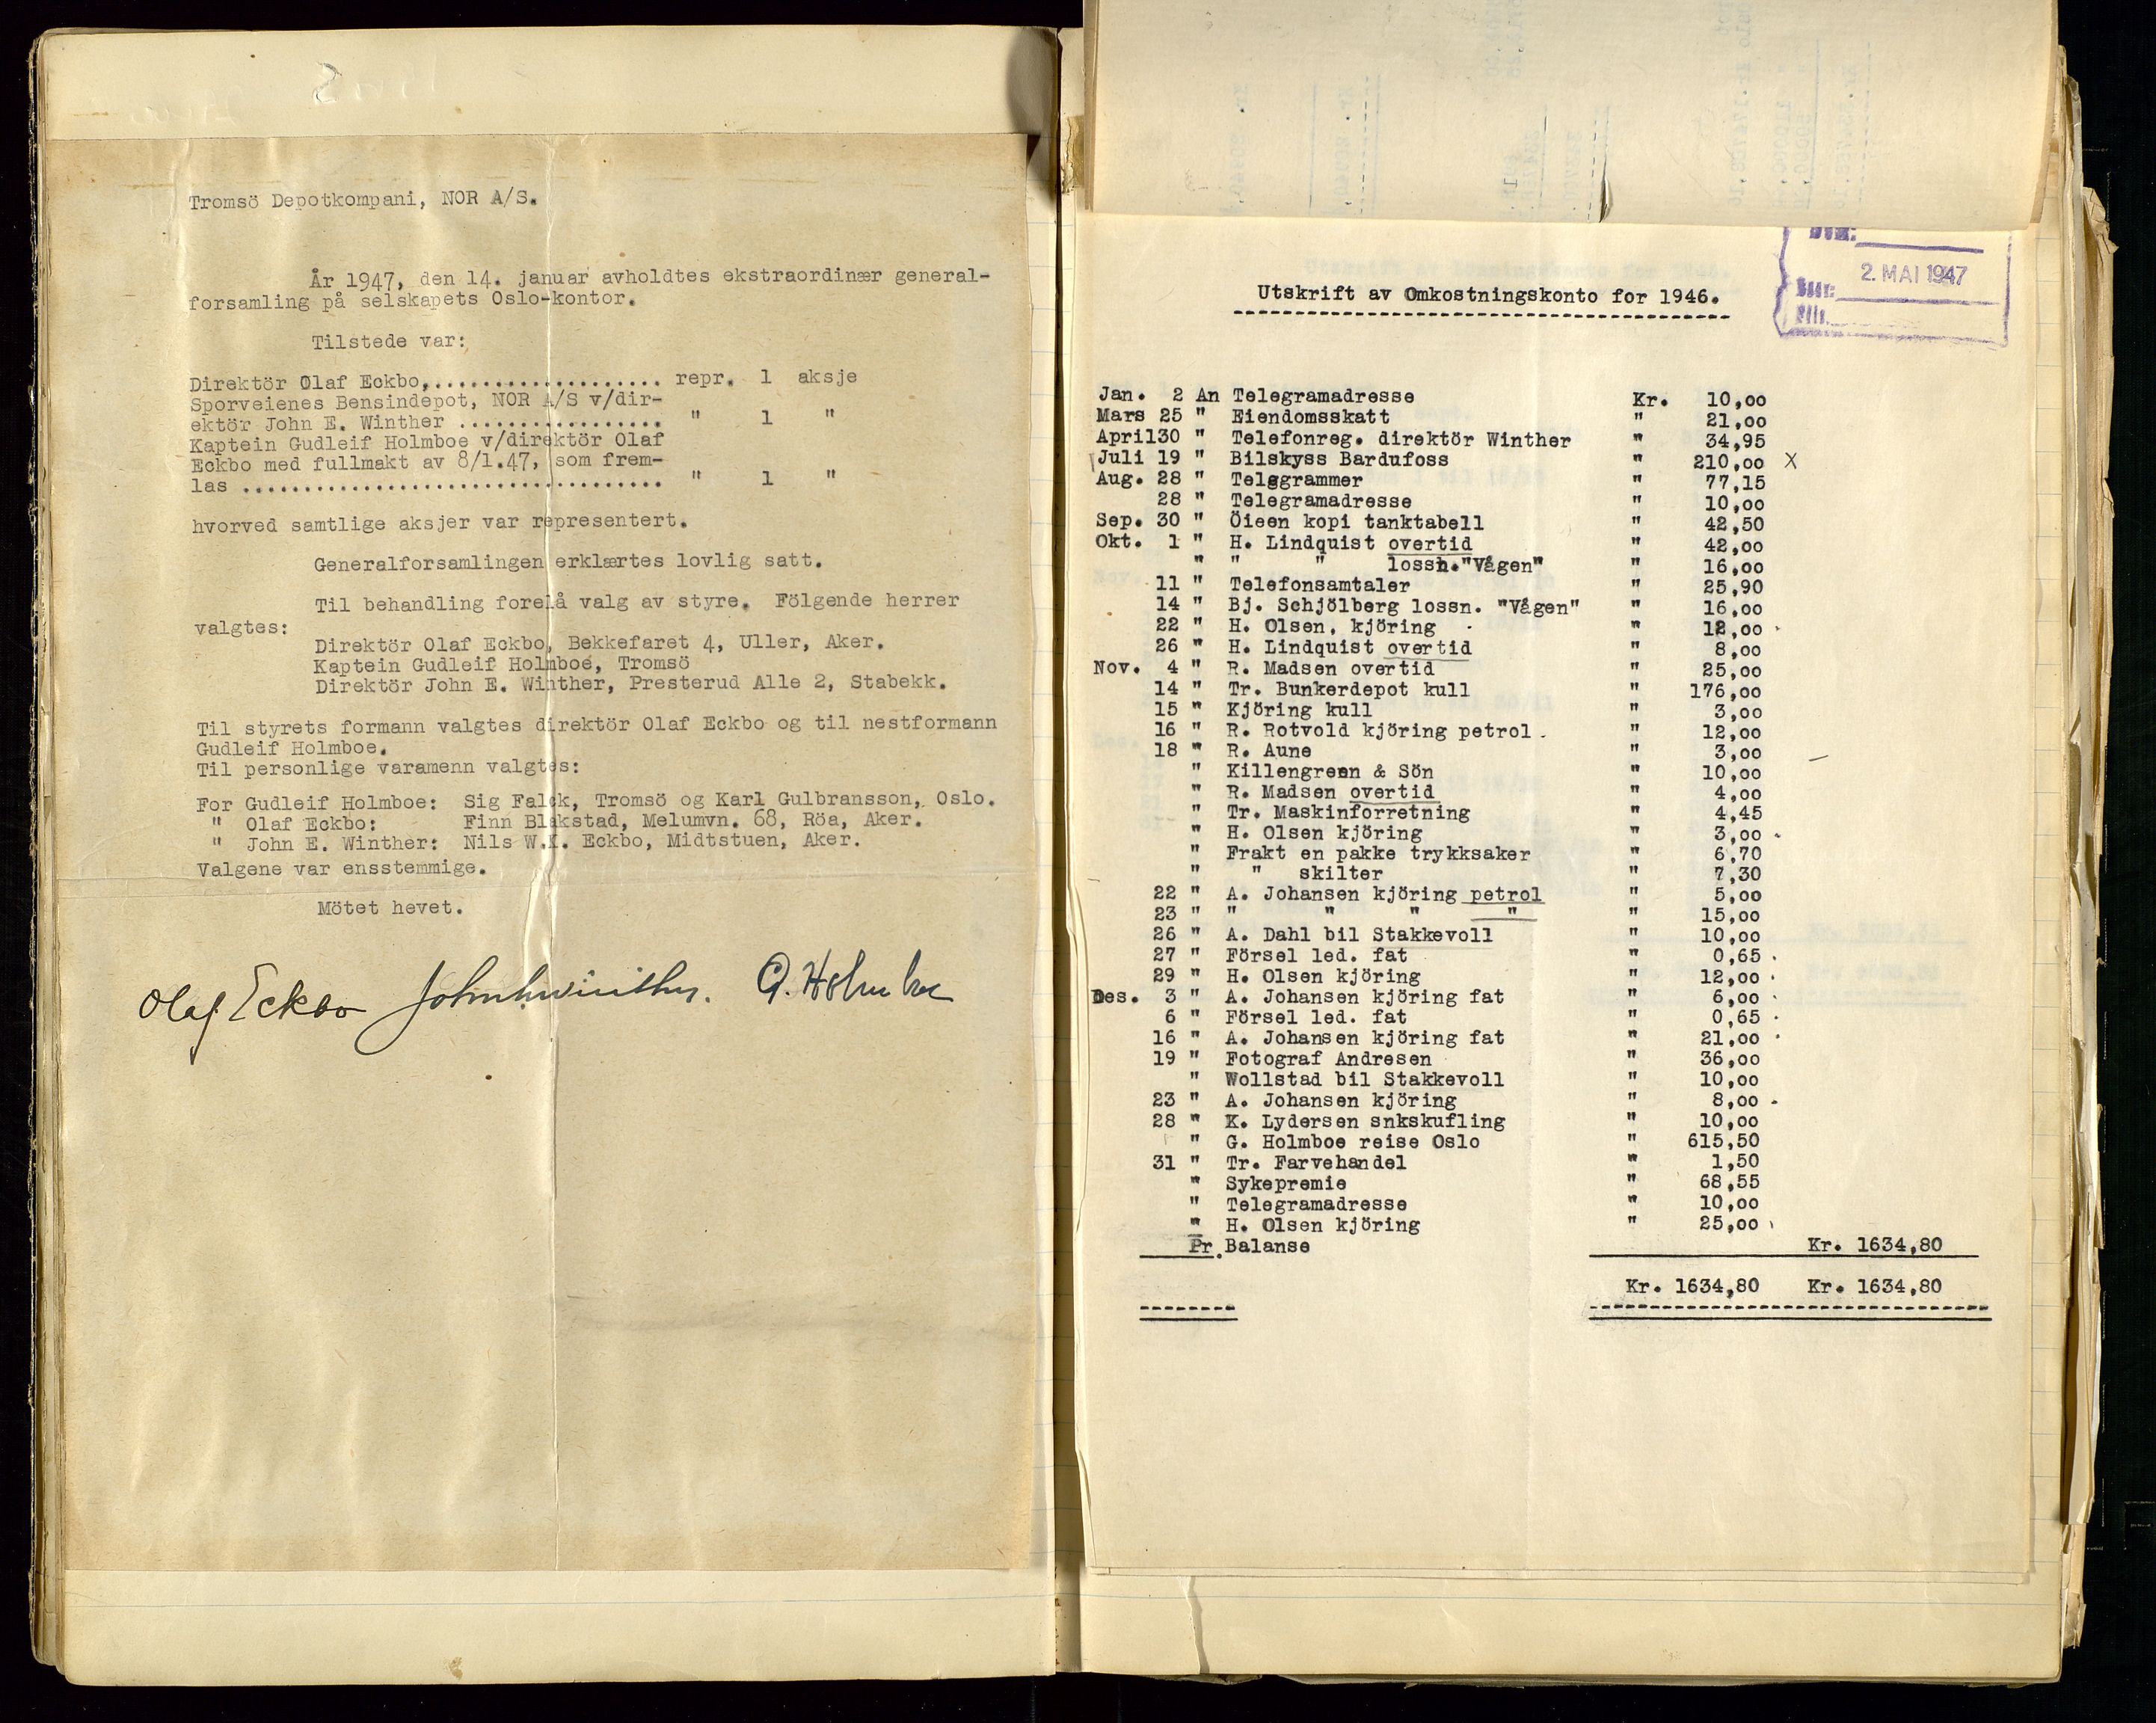 Tromsö Depotkompani, NOR A/S.
År 1947, den 14. januar avholdtes ekstraordinær general-
forsamling på selskapets Oslo-kontor.
Tilstede var:
Direktör Olaf Eckbo,................... repr. 1 aksje
Sporveienes Bensindepot, NOR A/S v/dir-
ektör John E. Winther ................. " 1 "
Kaptein Gudleif Holmboe v/direktör Olaf
Eckbo med fullmakt av 8/1.47, som frem-
las ................................... " 1 "
hvorved samtlige aksjer var representert.
Generalforsamlingen erklærtes lovlig satt.
Til behandling forelå valg av styre. Fölgende herrer
valgtes:
Direktör Olaf Eckbo, Bekkefaret 4, Uller, Aker.
Kaptein Gudleif Holmboe, Tromsö
Direktör John E. Winther, Presterud Alle 2, Stabekk.
Til styrets formann valgtes direktör Olaf Eckbo og til nestformann
Gudleif Holmboe.
Til personlige varamenn valgtes:
For Gudleif Holmboe: Sig Falck, Tromsö og Karl Gulbransson, Oslo.
" Olaf Eckbo: Finn Blakstad, Melumvn. 68, Röa, Aker.
" John E. Winther: Nils W.K. Eckbo, Midtstuen, Aker.
Valgene var ensstemmige.
Mötet hevet.
Olaf Eckbo John E. Winther. G. Holmboe
2. MAI 1947
Utskrift av Omkostningskonto for 1946.
Jan. 2 An Telegramadresse Kr. 10,00
Mars 25 " Eiendomsskatt " 21,00
April30 " Telefonreg. direktör Winther " 34,95
Juli 19 " Bilskyss Bardufoss " 210,00 X
Aug. 28 " Telggrammer " 77,15
28 " Telegramadresse " 10,00
Sep. 30 " Öieen kopi tanktabell " 42,50
Okt. 1 " H. Lindquist overtid " 42,00
" " " lossn."Vågen" " 16,00
11 " Telefonsamtaler " 25,90
14 " Bj. Schjölberg lossn. "Vågen" " 16,00
22 " H. Olsen, kjöring " 12,00
26 " H. Lindquist overtid " 8,00
Nov. 4 " R. Madsen overtid " 25,00
14 " Tr. Bunkerdepot kull " 176,00
15 " Kjöring kull " 3,00
16 " R. Rotvold kjöring petrol. " 12,00
18 " R. Aune " 3,00
" Killengreen & Sön " 10,00
" R. Madsen overtid " 4,00
" Tr. Maskinforretning " 4,45
" H. Olsen kjöring " 3,00
" Frakt en pakke trykksaker " 6,70
" " skilter " 7,30
22 " A. Johansen kjöring petrol " 5,00
23 " " " " " " 15,00
26 " A. Dahl bil Stakkevoll " 10,00
27 " Försel led. fat " 0,65
29 " H. Olsen kjöring " 12,00
Des. 3 " A. Johansen kjöring fat " 6,00
6 " Försel led. fat " 0,65
16 " A. Johansen kjöring fat " 21,00
19 " Fotograf Andresen " 36,00
" Wollstad bil Stakkevoll " 10,00
23 " A. Johansen kjöring " 8,00
28 " K. Lydersen snkskufling " 10,00
" G. Holmboe reise Oslo " 615,50
31 " Tr. Farvehandel " 1,50
" Sykepremie " 68,55
" Telegramadresse " 10,00
" H. Olsen kjöring " 25,00
Pr. Balanse Kr. 1634,80
Kr. 1634,80 Kr. 1634,80